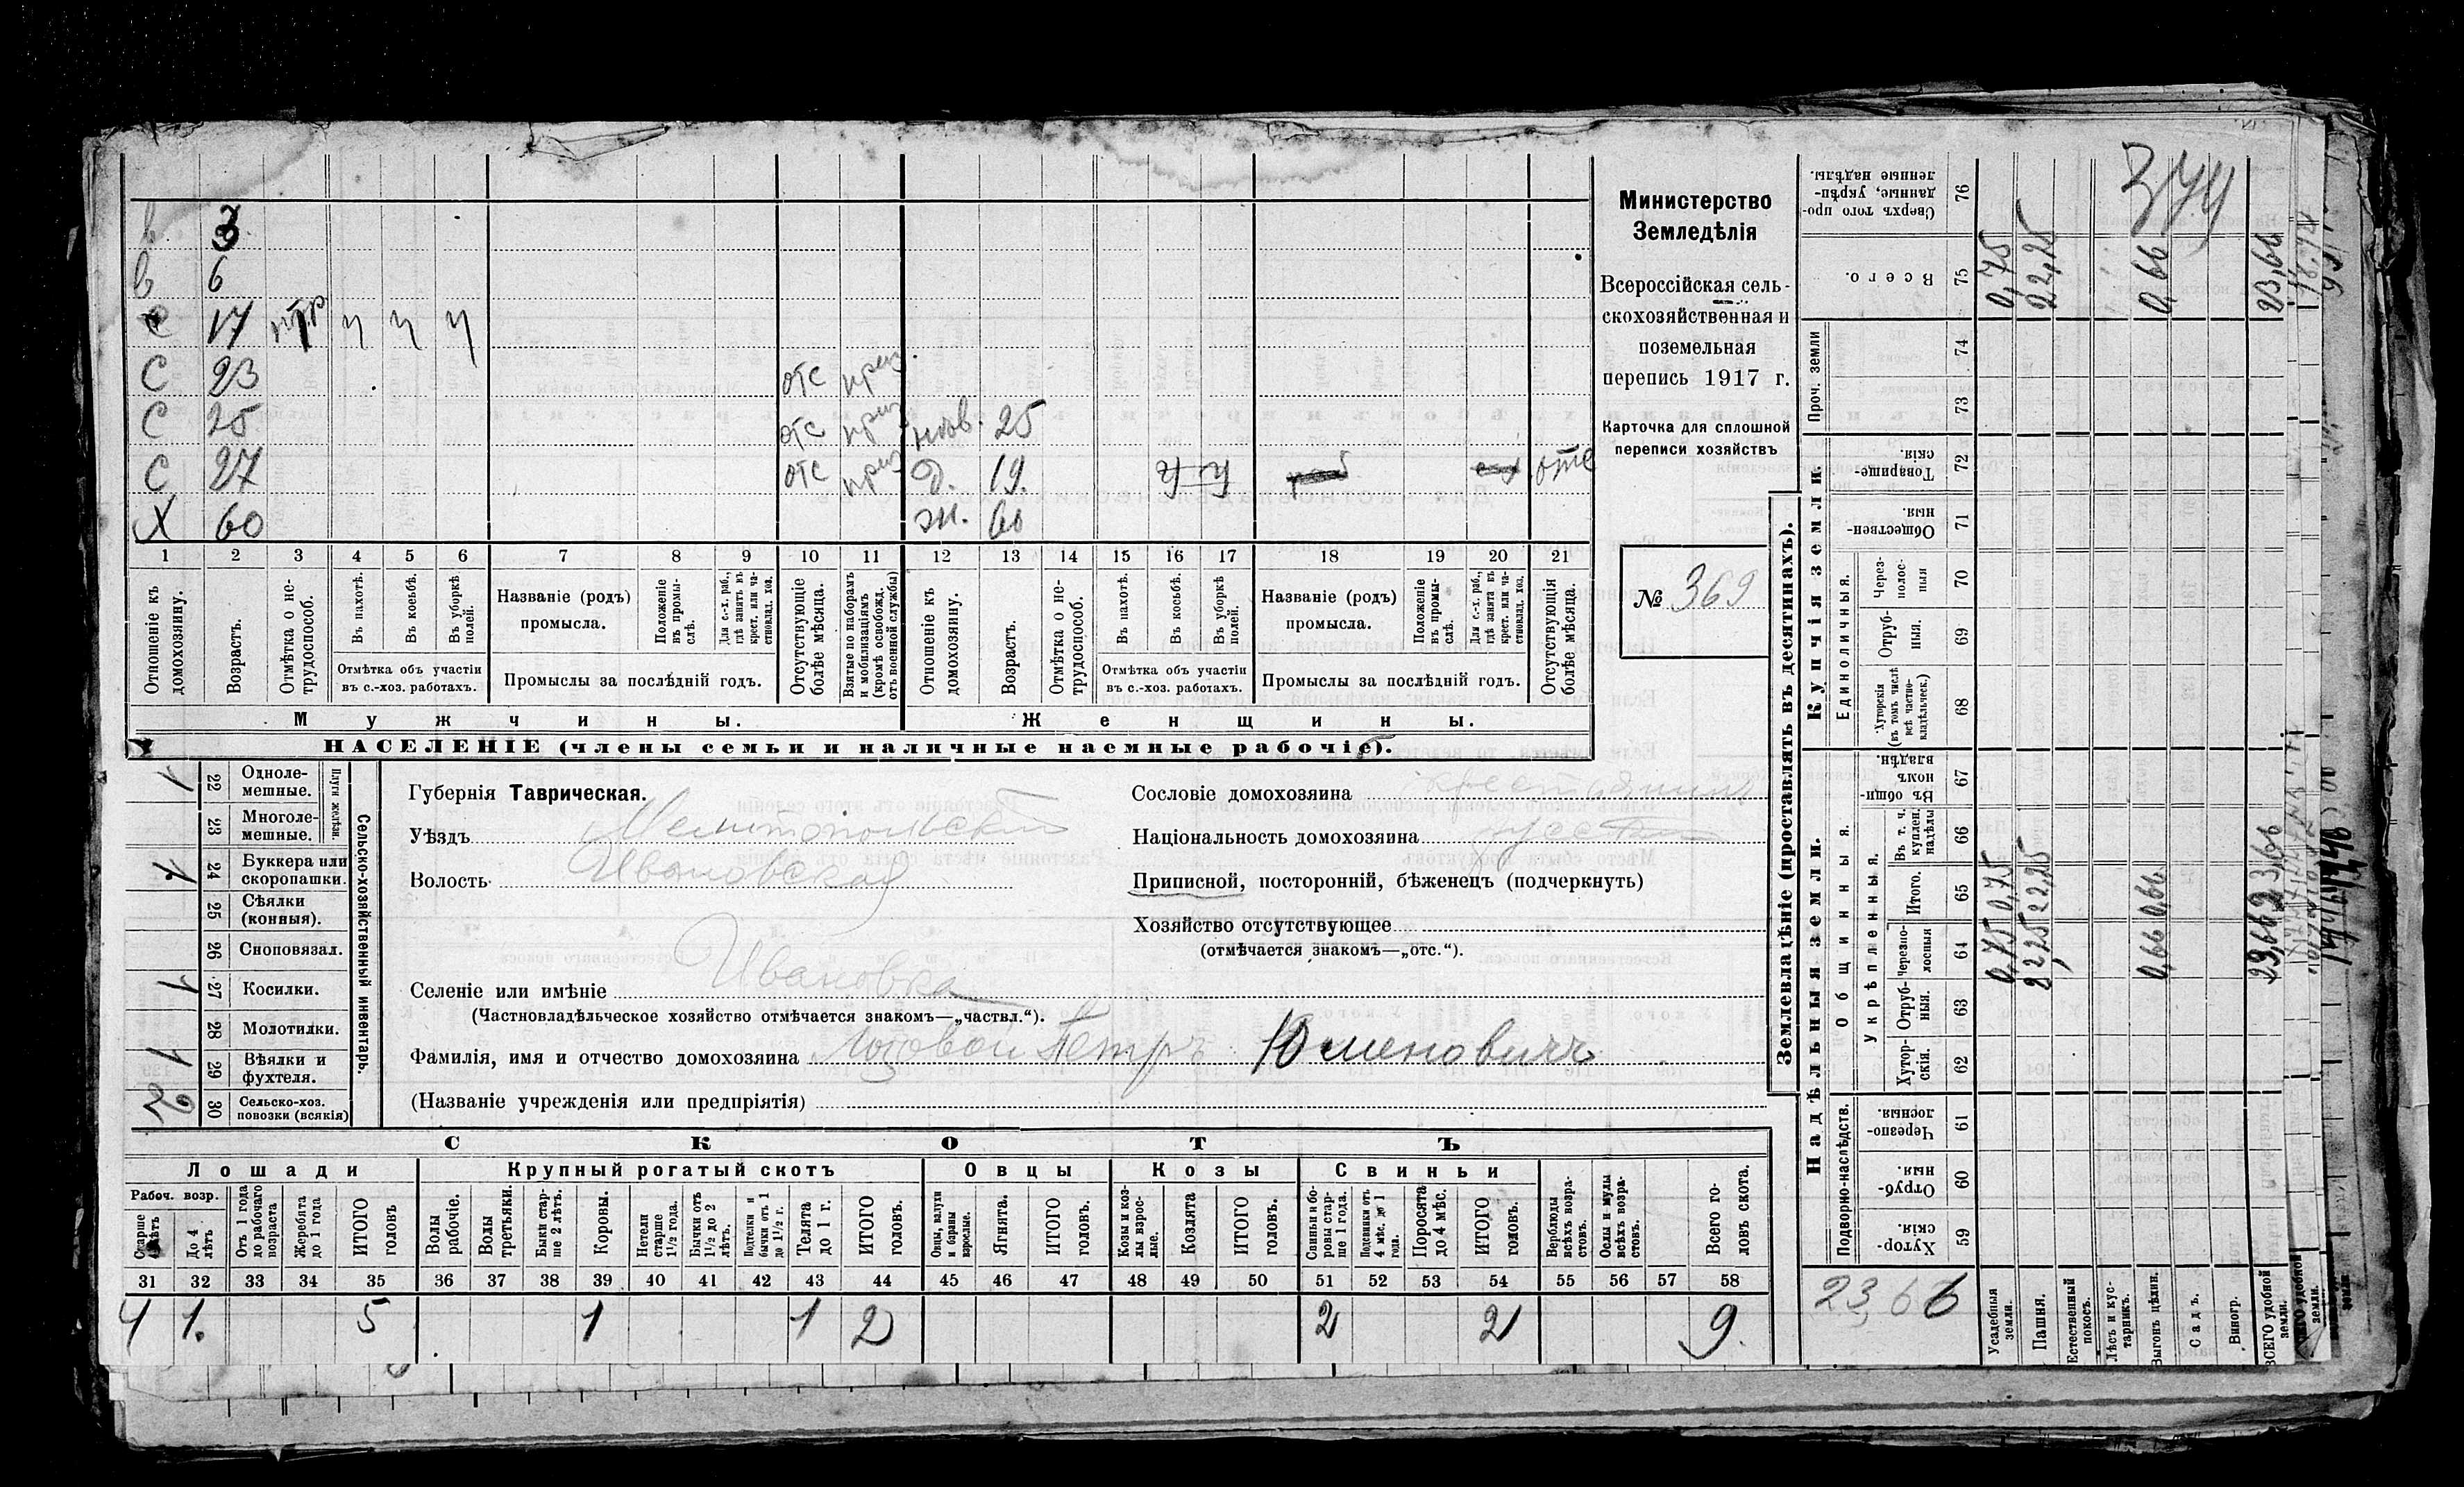 374
Министерство
Земледѣлія
Всероссійская сель-
скохозяйственная и
поземельная
перепись 1917 г.
Карточка для сплошной
переписи хозяйствъ
№ 369
в 3
в 6
с 17 нтр ч ч ч
с 23 отс приз
с 25 отс приз нев. 25
с 27 отс приз д. 19. у у отс
х 60 ж. 60
1 2 3 4 5 6 7 8 9 10 11 12 13 14 15 16 17 18 19 20 21
Отношеніе къ домохозяину.
Возрастъ.
Отмѣтка о не-трудоспособ.
Въ пахотѣ.
Въ косьбѣ.
Въ уборкѣ полей.
Отмѣтка объ участіи
въ с.-хоз. работахъ.
Названіе (родъ)
промысла.
Положеніе въ промыс-лѣ.
Для с.-х. раб., гдѣ занятъ въ крест. или ча-стновлад. хоз.
Промыслы за послѣдній годъ.
Отсутствующіе болѣе мѣсяца.
Взятые по наборамъ и мобилизаціямъ (кромѣ освобожд. отъ военной службы)
Отношеніе къ домохозяину.
Возрастъ.
Отмѣтка о не-трудоспособ.
Въ пахотѣ.
Въ косьбѣ.
Въ уборкѣ полей.
Отмѣтка объ участіи
въ с.-хоз. работахъ.
Названіе (родъ)
промысла.
Положеніе въ промыс-лѣ.
Для с.-х. раб., гдѣ занята въ крест. или ча-стновлад. хоз.
Промыслы за послѣдній годъ.
Отсутствующія болѣе мѣсяца.
Мужчины.
Женщины.
НАСЕЛЕНІЕ (члены семьи и наличные наемные рабочіе).
Сельско-хозяйственный инвентарь.
Плуги желѣзн.
22 Однолемешные. 1
23 Многолемешные.
24 Буккера или скоропашки. 1
25 Сѣялки (конныя).
26 Сноповязал.
27 Косилки. 1
28 Молотилки.
29 Вѣялки и фухтеля. 1
30 Сельско-хоз. повозки (всякія) 2
Губернія Таврическая.
Уѣздъ Мелитопольскій
Волость Ивановская
Селеніе или имѣніе Ивановка
(Частновладѣльческое хозяйство отмѣчается знакомъ—„частвл.“).
Фамилія, имя и отчество домохозяина Лозовой Петръ Юменовичъ
(Названіе учрежденія или предпріятія)
Сословіе домохозяина крестьянин
Національность домохозяина русский
Приписной, посторонній, бѣженецъ (подчеркнуть)
Хозяйство отсутствующее
(отмѣчается знакомъ—„отс.“).
СКОТЪ
Лошади
Крупный рогатый скотъ
Овцы
Козы
Свиньи
Рабоч. возр.
Старше 4 лѣтъ
До 4 лѣтъ
Отъ 1 года до рабочаго возраста
Жеребята до 1 года
ИТОГО головъ
Волы рабочіе.
Волы третьяки.
Быки стар-ше 2 лѣтъ.
Коровы.
Нетели старше 1½ года.
Бычки отъ 1½ до 2 лѣтъ.
Подтелки и бычки отъ 1 до 1½ г.
Телята до 1 г.
ИТОГО головъ.
Овцы, валухи и бараны взрослые.
Ягнята.
ИТОГО головъ.
Козы и коз-лы взрос-лые.
Козлята
ИТОГО головъ.
Свиньи и бо-ровы стар-ше 1 года.
Подсвинки отъ 4 мѣс. до 1 года.
Поросята до 4 мѣс.
ИТОГО головъ.
Верблюды всѣхъ возра-стовъ.
Ослы и мулы всѣхъ возра-стовъ.
Всего го-ловъ скота.
31 32 33 34 35 36 37 38 39 40 41 42 43 44 45 46 47 48 49 50 51 52 53 54 55 56 57 58
4 1. 5 1 1 2 2 2 9.
Землевладѣніе (проставлять въ десятинахъ).
Купчія земли.
Надѣльныя земли.
Проч. земли
Единоличныя.
Общинныя.
Укрѣпленныя.
Подворно-наслѣдств.
76 Сверхъ того про-данные, укрѣп-ленные надѣлы.
75 Всего. 0,75 22,25 0,66 23,66
74
73
72 Товарище-скія
71 Обществен-ныя
70 Через-полос-ныя
69 Отруб-ныя.
68 Хуторскія (въ томъ числѣ всѣ частно-владѣльческ.)
67 Въ общин-номъ владѣн.
66 Въ т. ч. куплен. надѣлы
65 Итого. 0,75 22,25 0,66 23,66
64 Черезпо-лосныя 0,75 22,25 0,66 23,66
63 Отруб-ныя.
62 Хутор-скія.
61 Черезпо-лосныя.
60 Отруб-ныя.
59 Хутор-скія.
23,66
Усадебныя земли.
Пашня.
Естественный покосъ.
Лѣсъ и кус-тарникъ.
Выгонъ цѣлин.
Садъ.
Виногр.
ВСЕГО удобной земли.